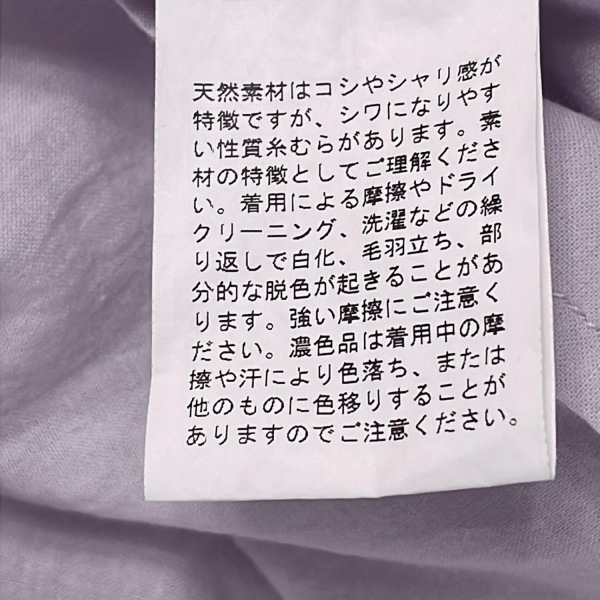 天然素材はコシやシャリ感が
特徴ですが、シワになりやす
い性質糸むらがあります。素
材の特徴としてご理解くださ
い。着用による摩擦やドライ
クリーニング、洗濯などの繰
り返しで白化、毛羽立ち、部
分的な脱色が起きることがあ
ります。強い摩擦にご注意く
ださい。濃色品は着用中の摩
擦や汗により色落ち、または
他のものに色移りすることが
ありますのでご注意ください。